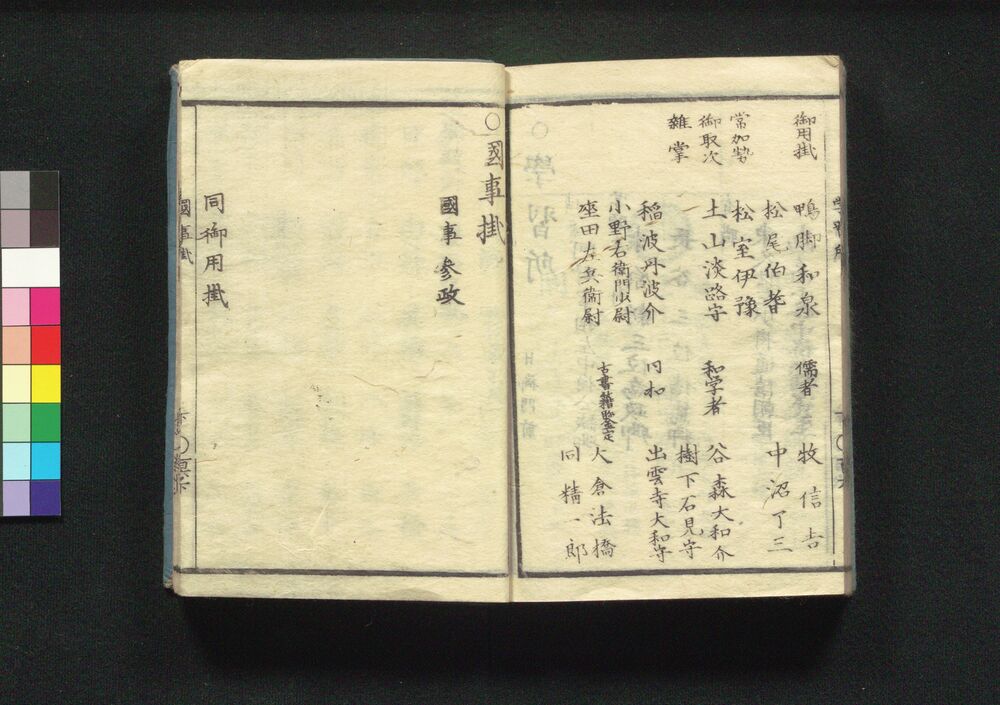 学習所
御用掛
鴨脚和泉
松尾伯耆
常加勢
松室伊豫
御取次
土山淡路守
雑掌
稲波丹波介
小野右衛門少尉
座田左兵衛尉
儒者
牧信吉
中沼了三
和学者
谷森大和介
樹下石見守
同
出雲寺大和守
古書籍鑒定
大倉法橋
同精一郎
○國事掛
國事参政
同御用掛
國事掛